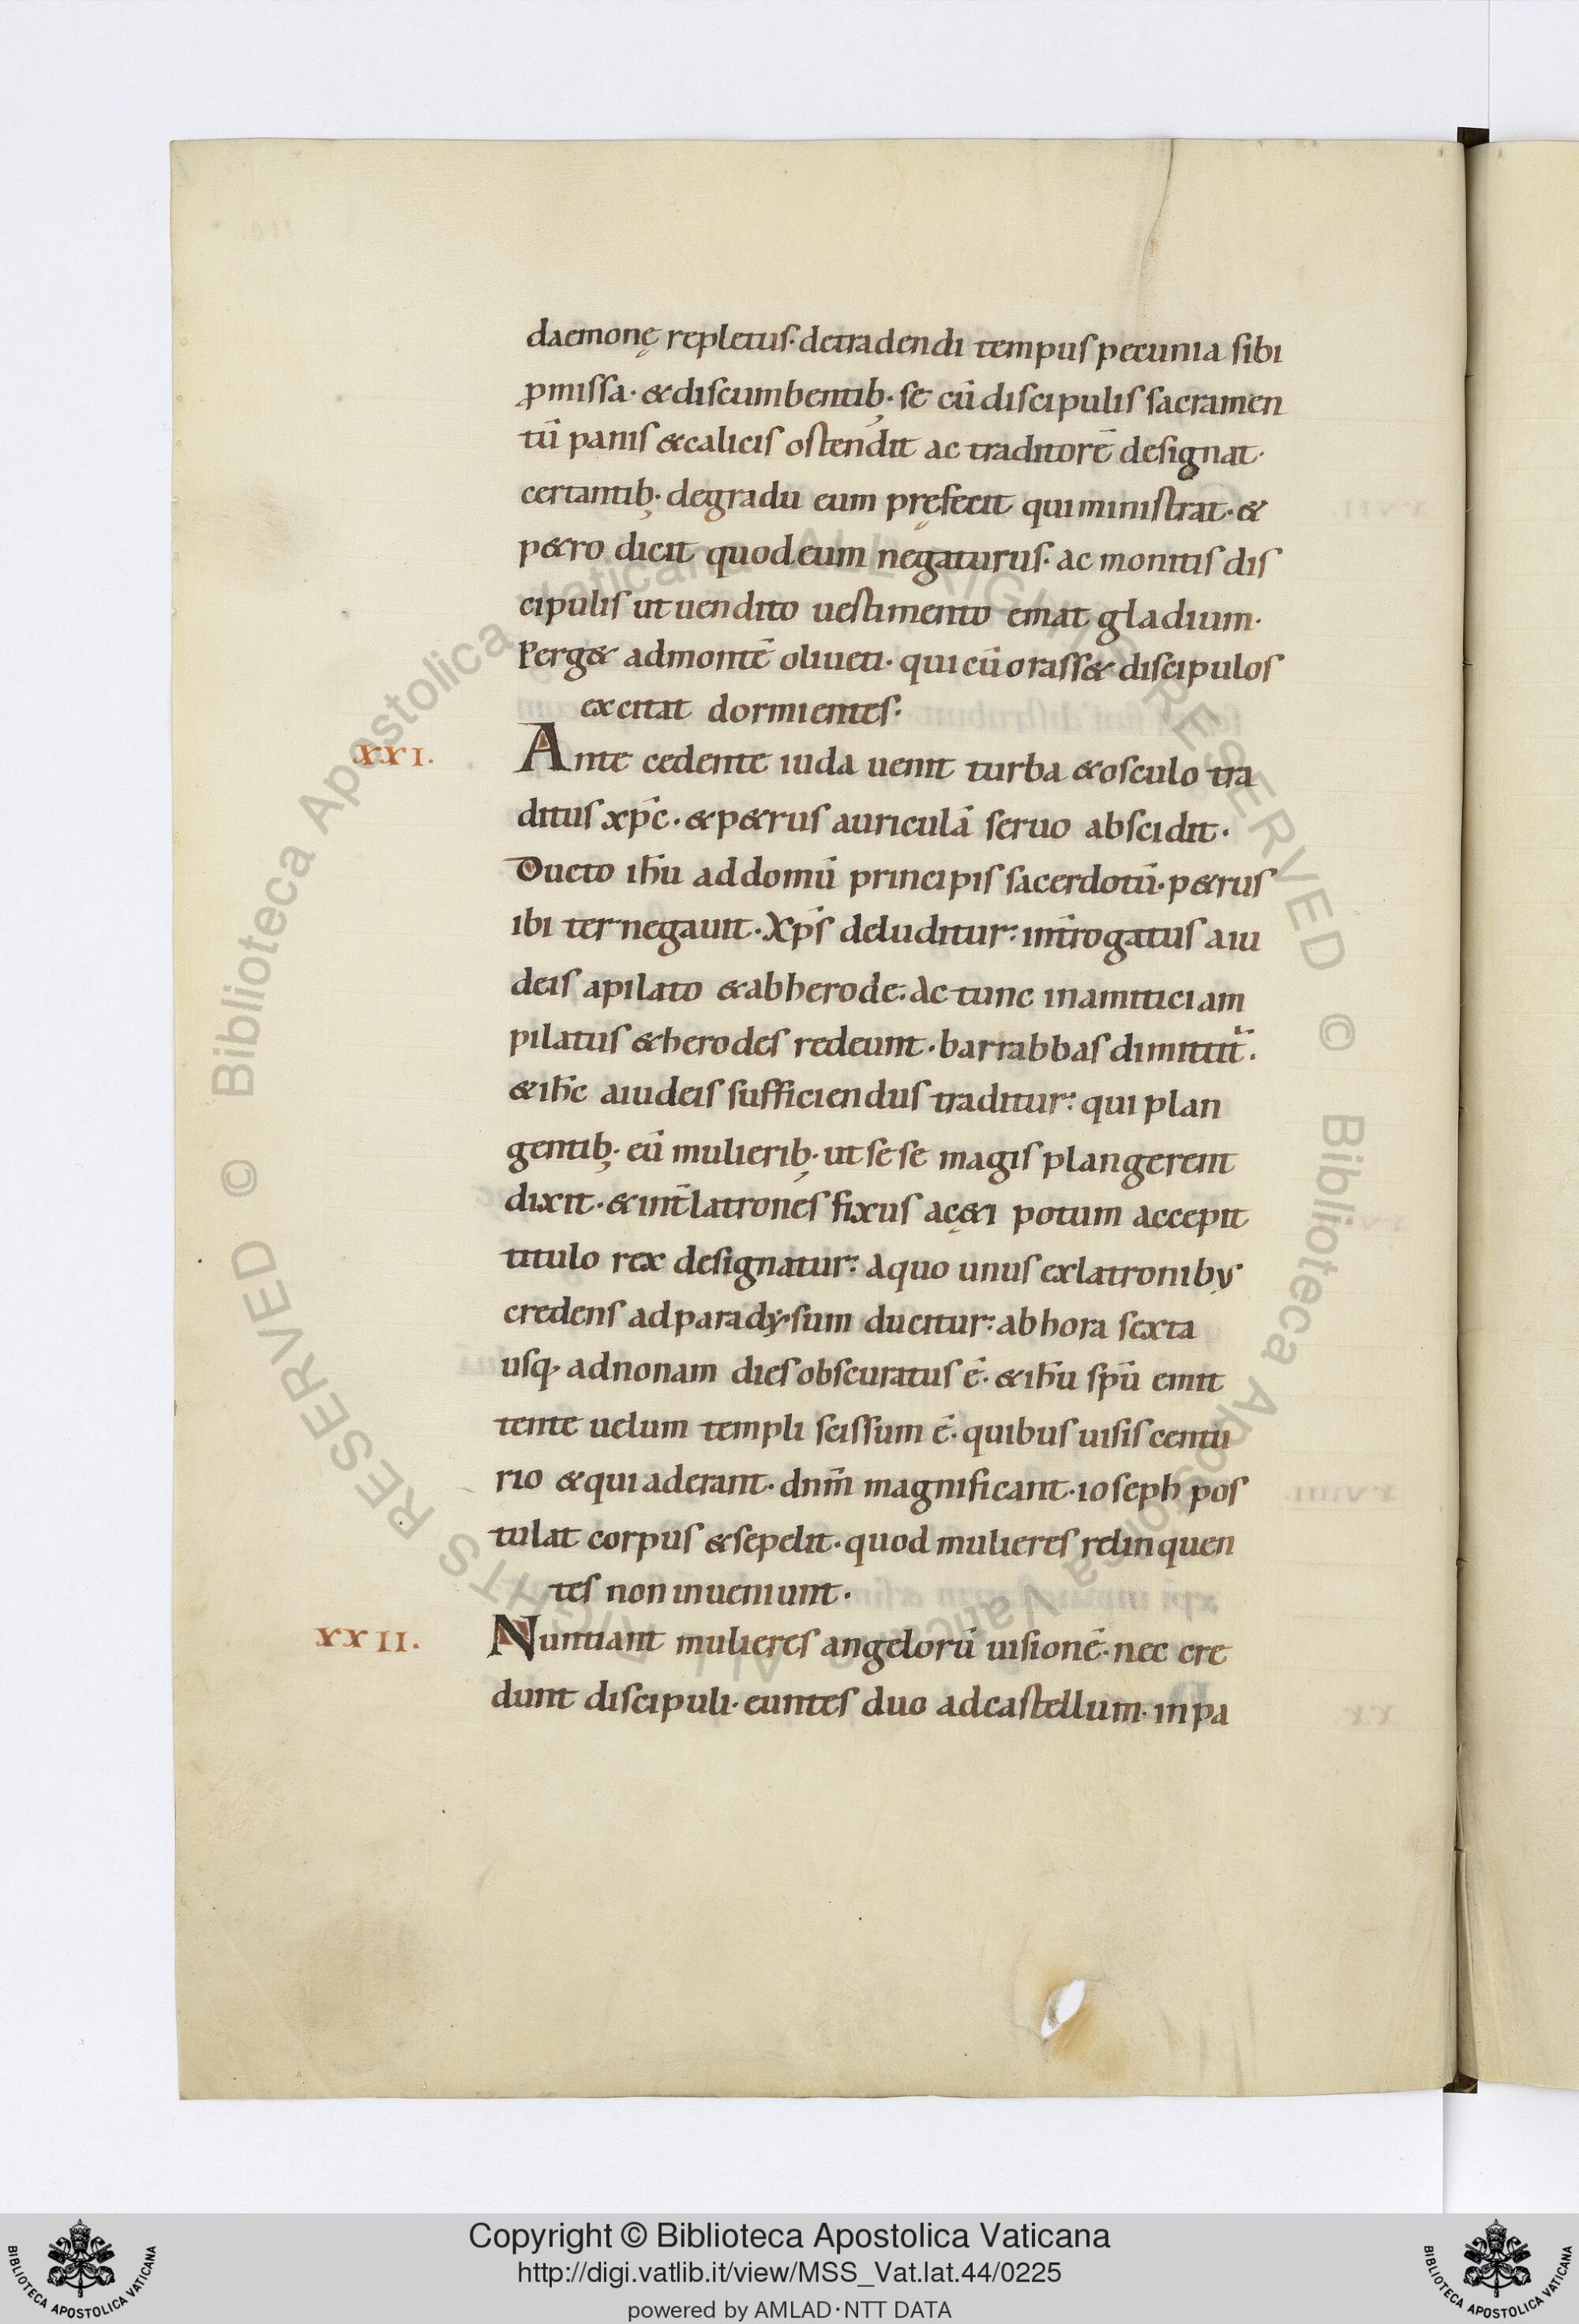 daemonę repletus· detradendi tempus pecunia sibi
ꝓmissa· &discumbentib;· se cū discipulis sacramen
tū panis &calicis ostendit ac traditorē designat·
certantib;· degradu eum pręfecit quiministrat· &
p&ro dicit quodeum negaturus· ac monitis dis
cipulis ut uendito uestimento emat gladium·
Perg& admontē oliueti· qui cū orass& discipulos
excitat dormientes·
XXI.
Ante cedente iuda uenit turba &osculo tra
ditus xp̄c· &p&rus auriculā seruo abscidit·
Ducto ih̄u addomū principis sacerdotū· p&rus
ibi ter negauit· Xp̄s deluditur: int̄rogatus aiu
deis apilato &abherode: Ac tunc inamiticiam
pilatus &herodes redeunt· barrabbas dimittit᷑·
&ih̄c aiudeis sufficiendus traditur: qui plan
gentib;· eū mulierib;· ut sese magis plangerent
dixit· &int̄latrones fixus acę&i potum accepit
titulo rex designatur: Aquo unus exlatronibus
credens adparadysum ducitur: abhora sexta
usq· adnonam dies obscuratus ē· &ih̄u sp̄ū emit
tente uelum templi scissum ē· quibus uisis centu
rio &qui aderant· dnm̄ magnificant· ioseph pos
tulat corpus &sepelit· quod mulieres relinquen
tes non inueniunt·
XXII.
Nuntiant mulieres angelorū uisionē· nec cre
dunt discipuli· euntes duo adcastellum· inpa
© Biblioteca Apostolica Vaticana ALL RIGHTS RESERVED © Biblioteca Apostolica Vaticana ALL RIGHTS RESERVED
Copyright © Biblioteca Apostolica Vaticana
http://digi.vatlib.it/view/MSS_Vat.lat.44/0225
powered by AMLAD·NTT DATA
BIBLIOTECA APOSTOLICA VATICANA
BIBLIOTECA APOSTOLICA VATICANA